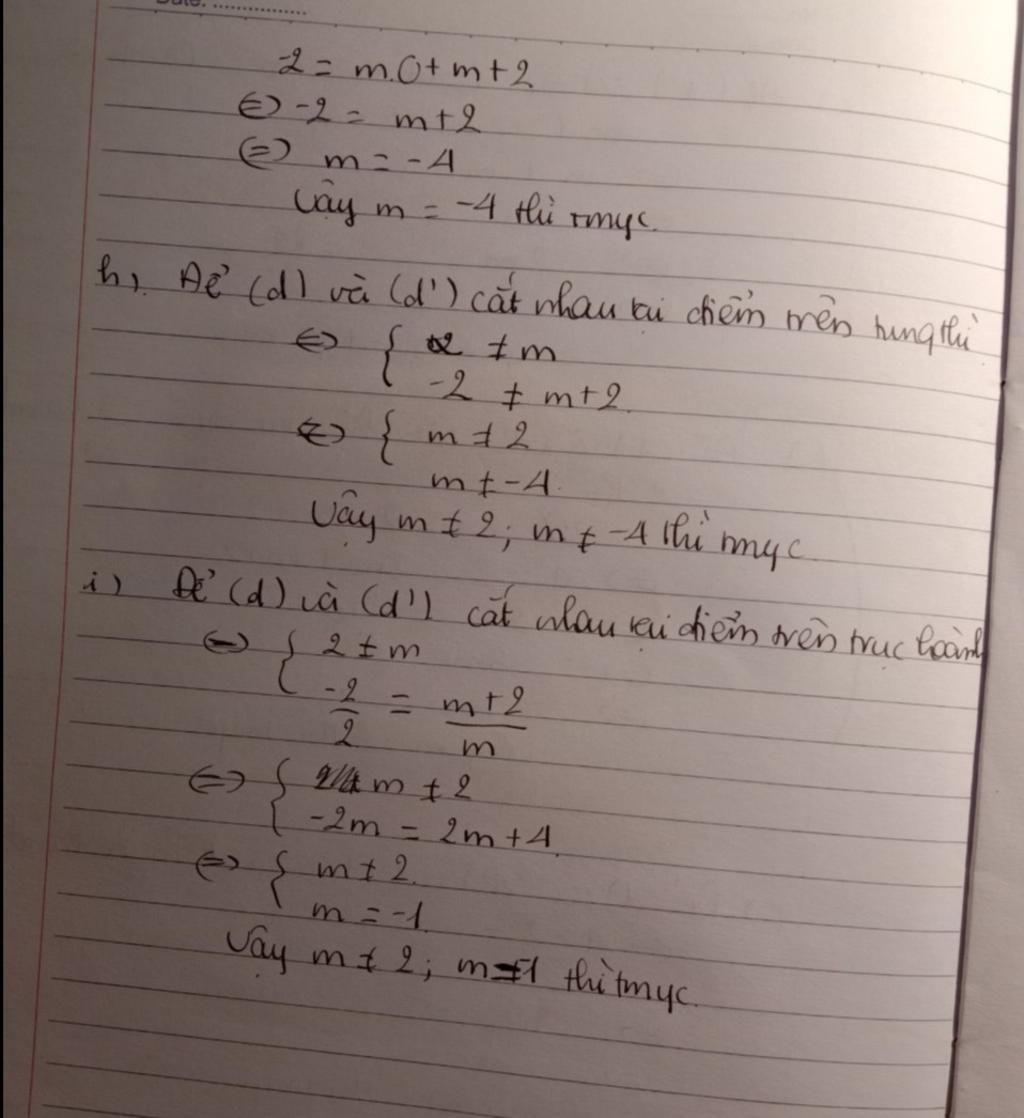 Date: ..................
-2 = m.0 + m + 2
⇔ -2 = m + 2
⇔ m = -4
Vậy m = -4 thì tmyc.
h) Để (d) và (d') cắt nhau tại điểm trên tung thì
⇔ { 2 ≠ m
-2 ≠ m + 2.
⇔ { m ≠ 2
m ≠ -4.
Vậy m ≠ 2; m ≠ -4 thì tmyc
i) Để (d) và (d') cắt nhau tại điểm trên trục hoành
⇔ { 2 ≠ m
-2/2 = (m + 2)/m
⇔ { m ≠ 2
-2m = 2m + 4.
⇔ { m ≠ 2.
m = -1.
Vậy m ≠ 2; m = -1 thì tmyc.